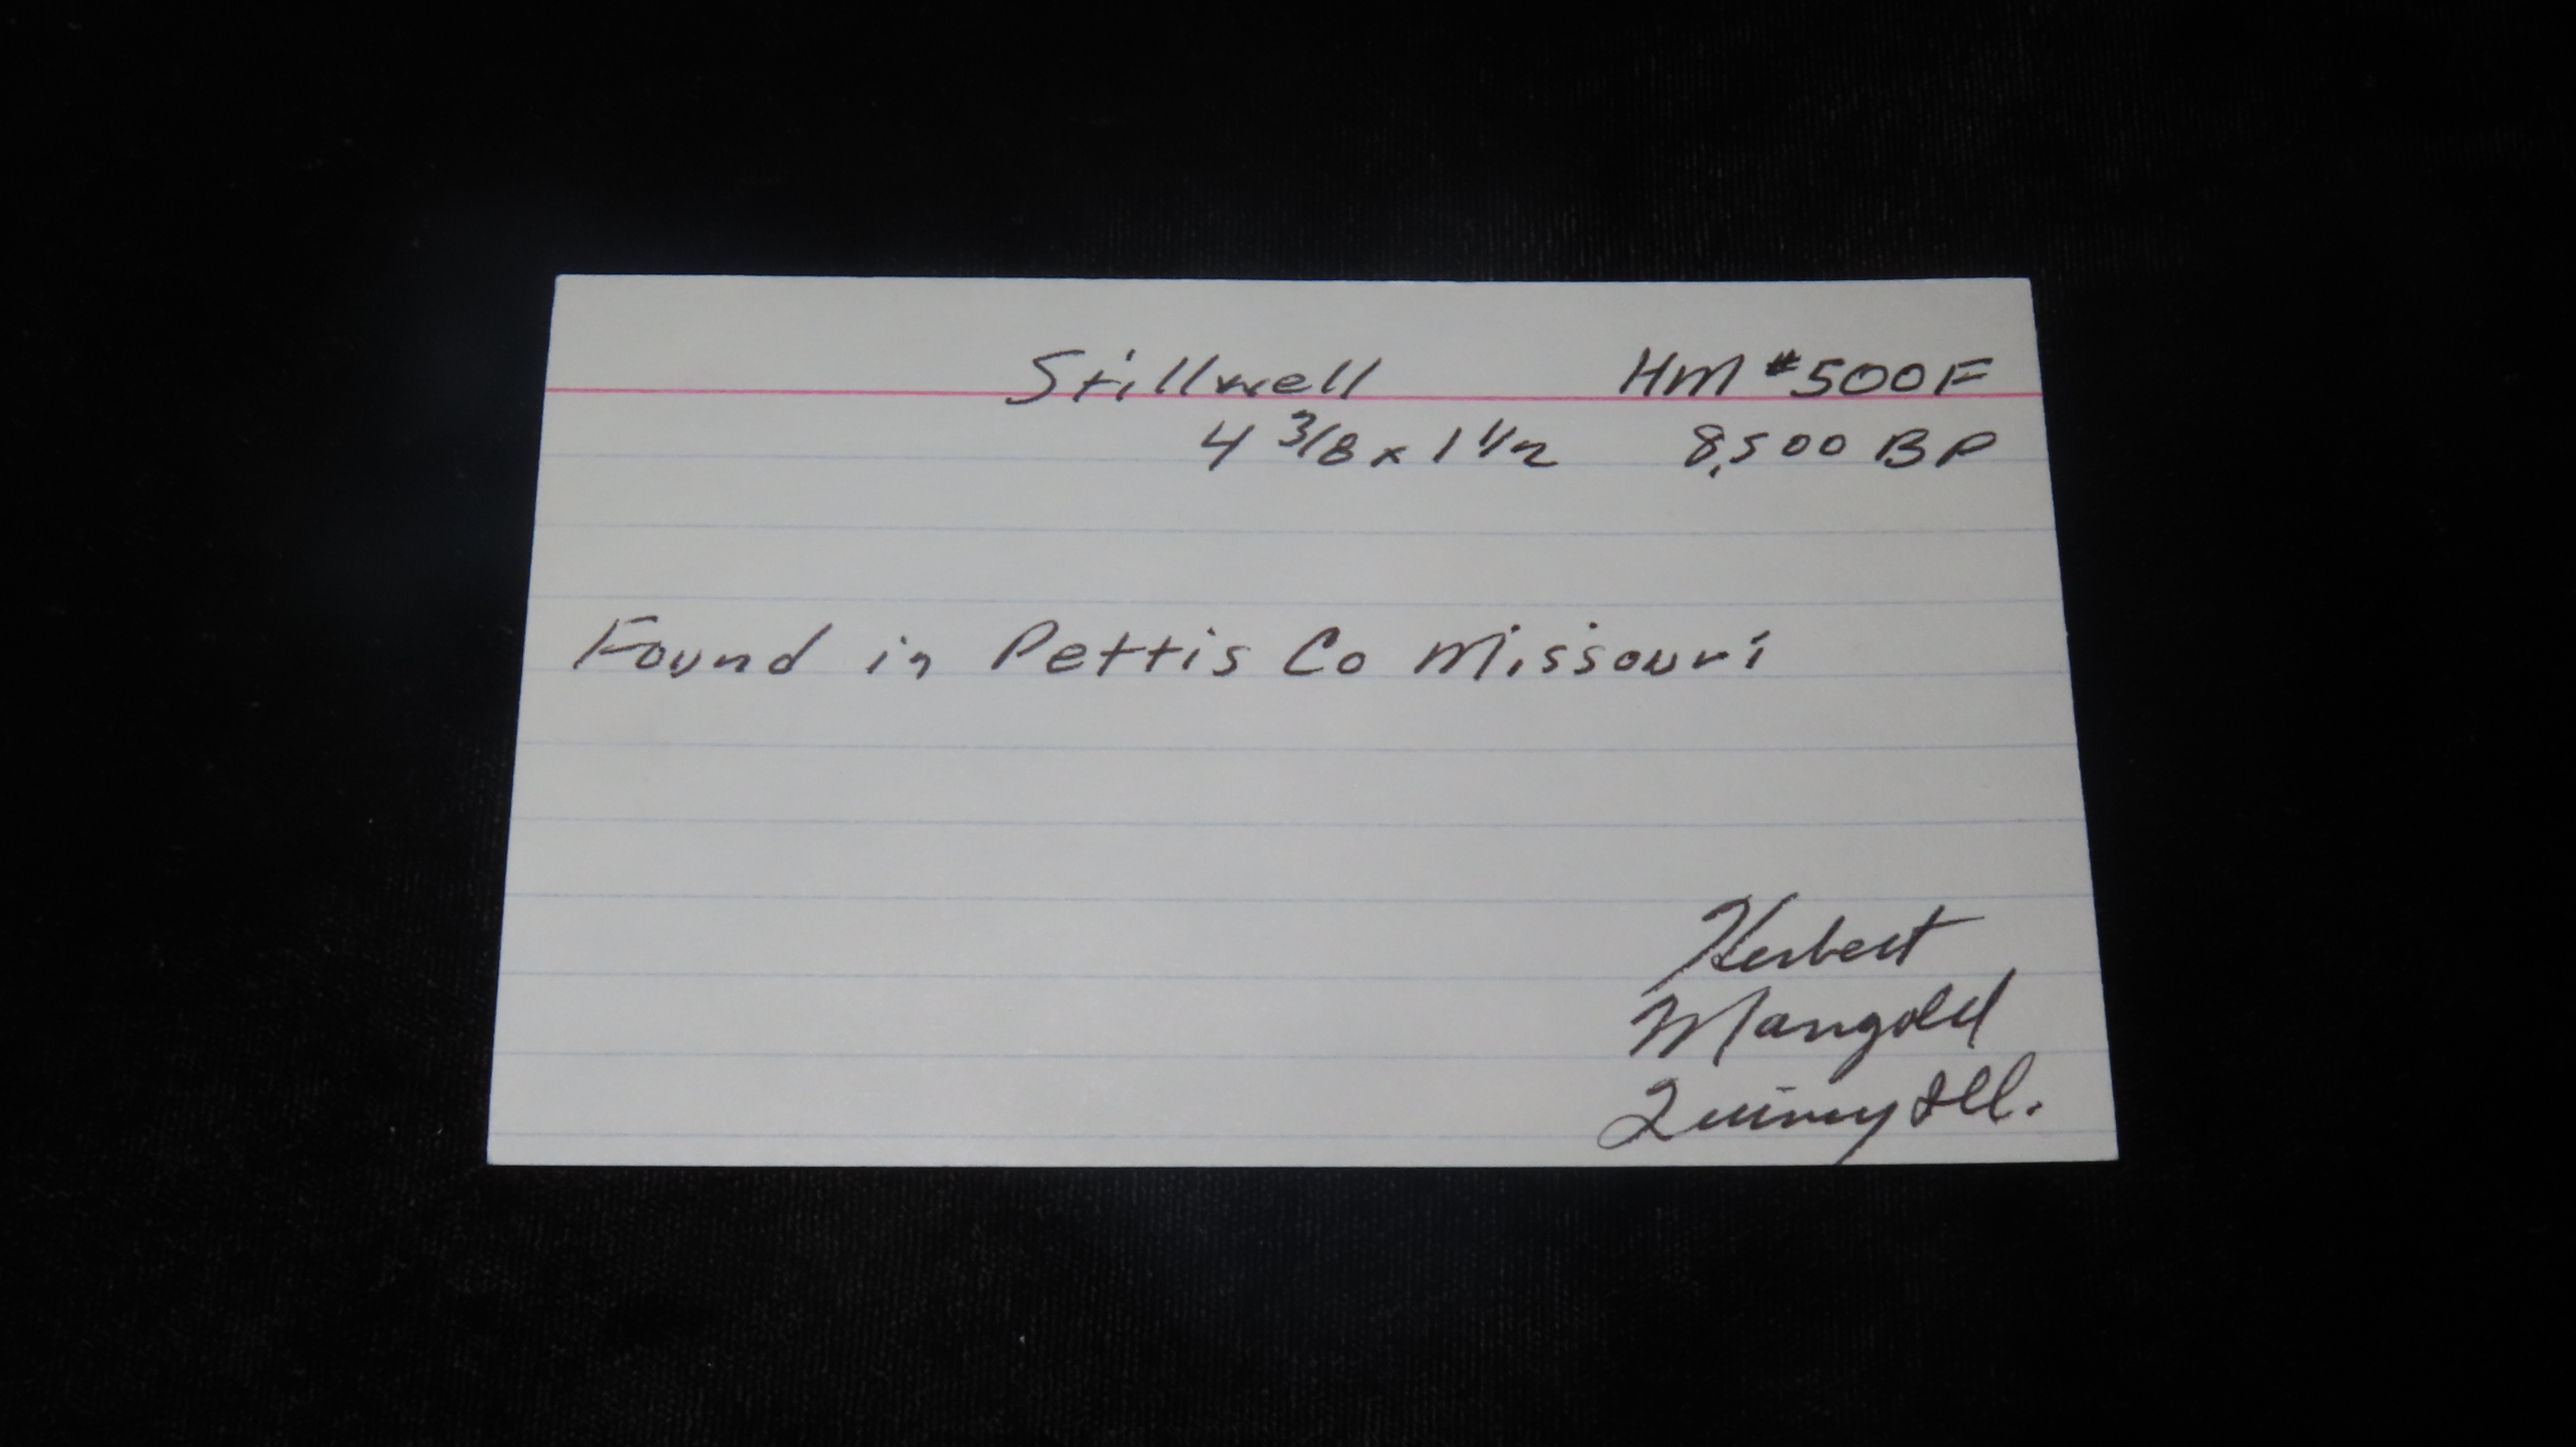 Stillwell HM #500F
4 3/8 x 1 1/2 8,500 BP
Found in Pettis Co Missouri
Herbert
Mangold
Quincy Ill.